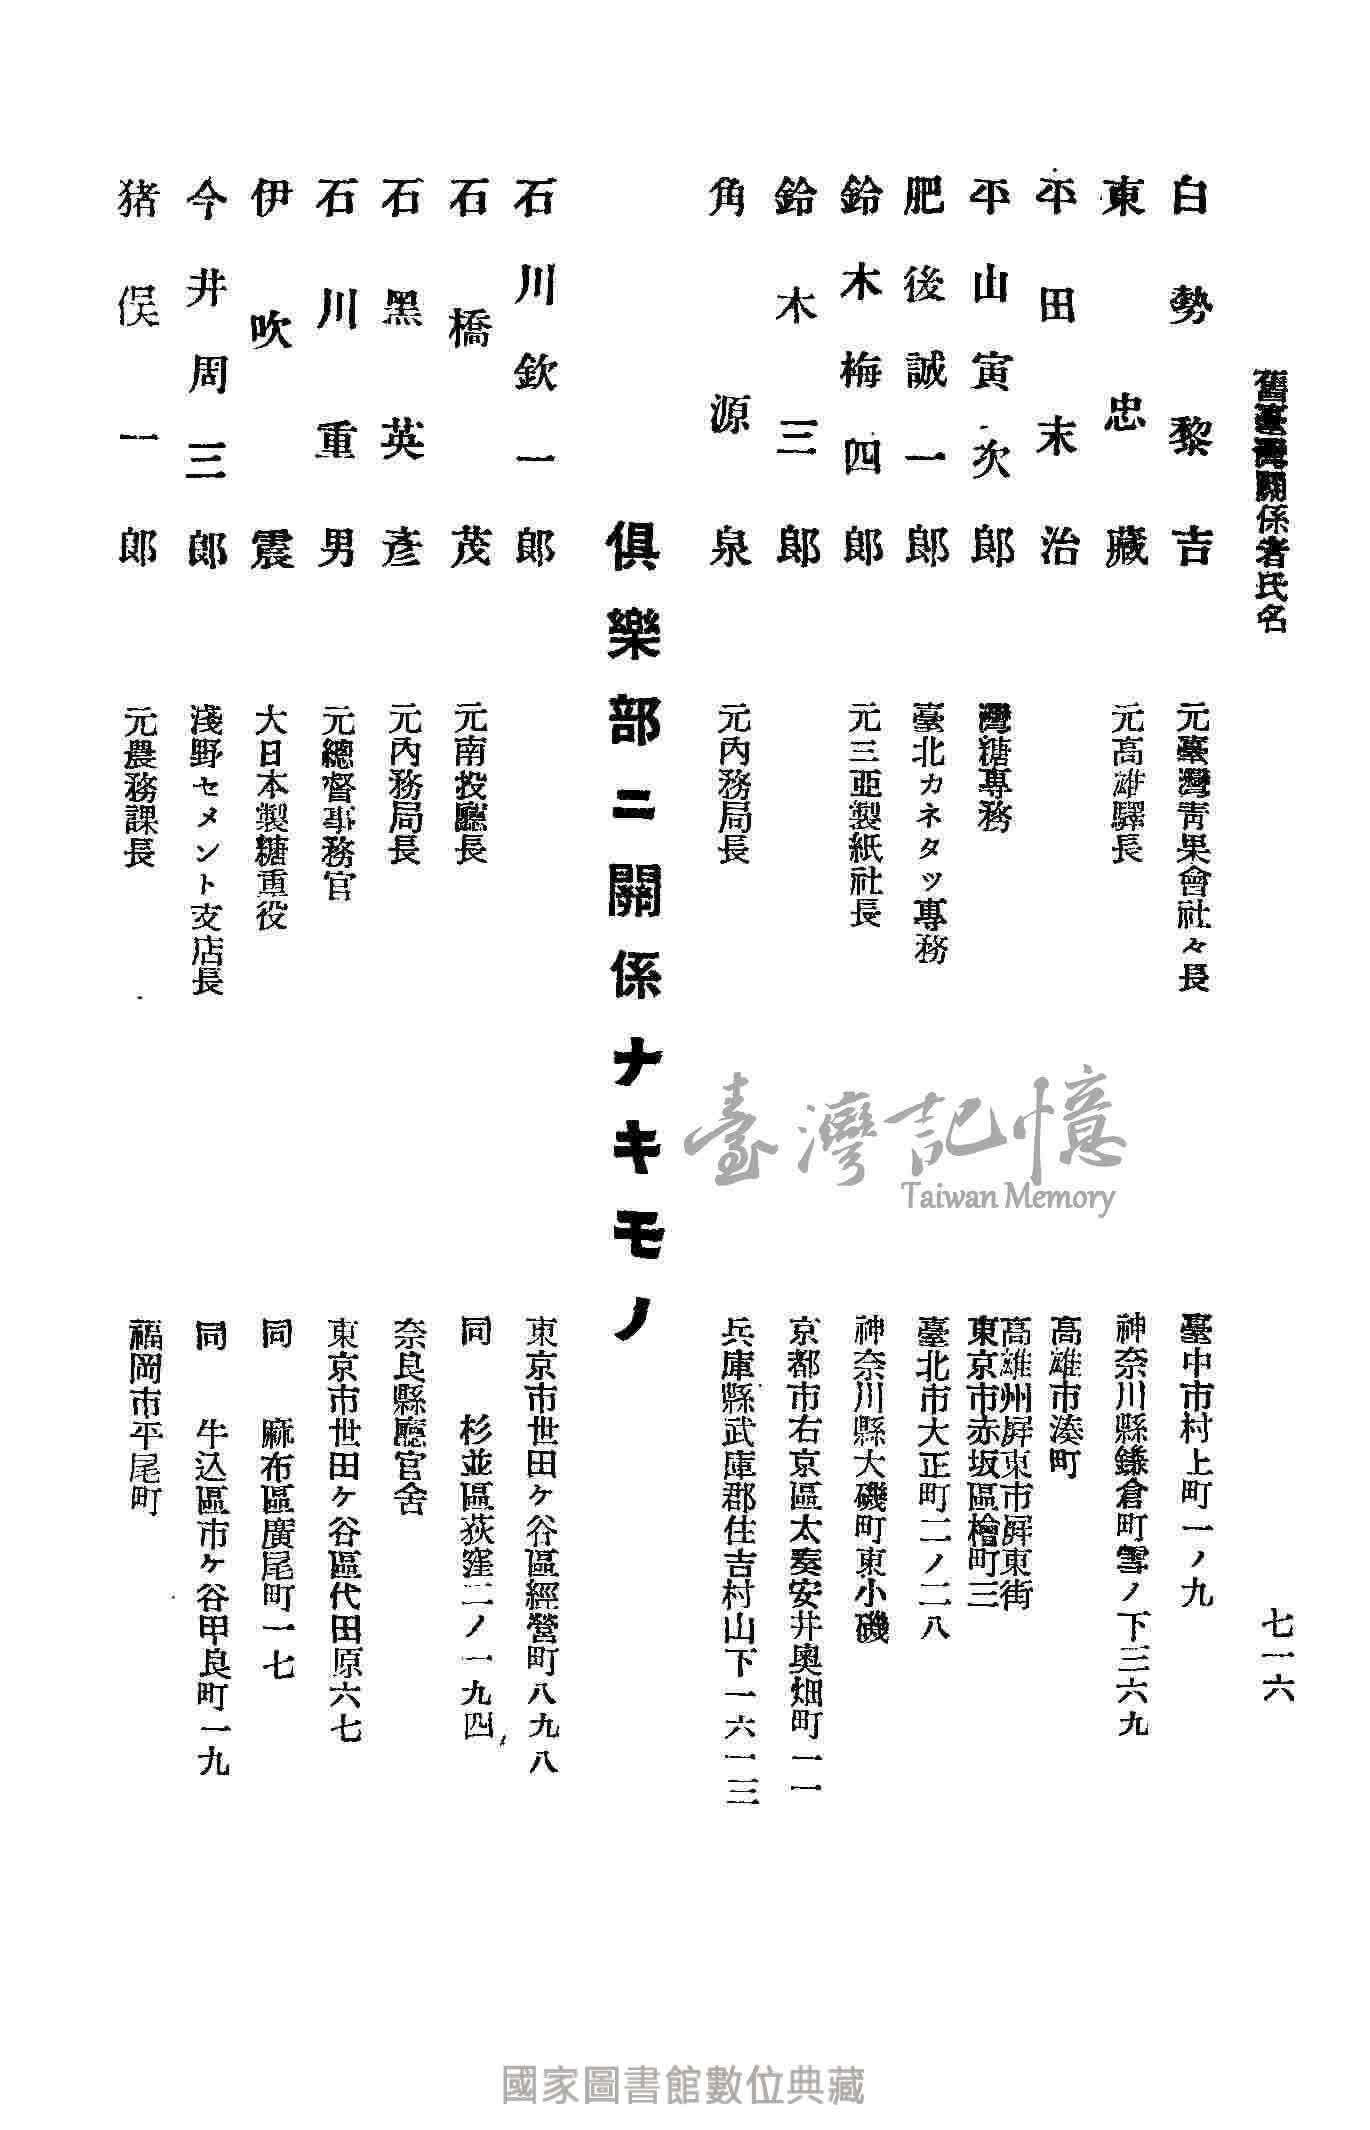 舊臺灣關係者氏名
七一六
白勢黎吉 元臺灣靑果會社々長 臺中市村上町一ノ九
東忠藏 元高雄驛長 神奈川縣鎌倉町雪ノ下三六九
平田末治 高雄市湊町
平山寅次郎 灣糖專務 高雄州屛東市屛東街
東京市赤坂區檜町三
肥後誠一郎 臺北カネタツ專務 臺北市大正町二ノ二八
鈴木梅四郎 元三亞製紙社長 神奈川縣大磯町東小磯
鈴木三郎 京都市右京區太秦安井奧畑町一一
角源泉 元內務局長 兵庫縣武庫郡住吉村山下一六一三
俱樂部ニ關係ナキモノ
石川欽一郎 東京市世田ケ谷區經營町八九八
石橋茂 元南投廳長 同 杉並區荻窪二ノ一九四
石黑英彥 元內務局長 奈良縣廳官舍
石川重男 元總督事務官 東京市世田ケ谷區代田原六七
伊吹震 大日本製糖重役 同 麻布區廣尾町一七
今井周三郎 淺野セメント支店長 同 牛込區市ケ谷甲良町一九
猪俣一郎 元農務課長 福岡市平尾町
臺灣記憶
Taiwan Memory
國家圖書館數位典藏